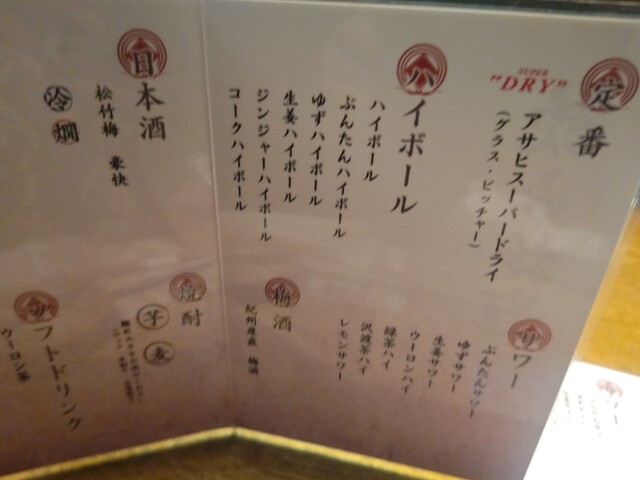 定番
SUPER
"DRY"
アサヒスーパードライ
(グラス・ピッチャー)
ハイボール
ハイボール
ぶんたんハイボール
ゆずハイボール
生姜ハイボール
ジンジャーハイボール
コークハイボール
日本酒
松竹梅 豪快
冷
燗
サワー
ぶんたんサワー
ゆずサワー
生姜サワー
ウーロンハイ
緑茶ハイ
沢渡茶ハイ
レモンサワー
梅酒
紀州産直 梅酒
焼酎
芋
麦
ソフトドリンク
ウーロン茶